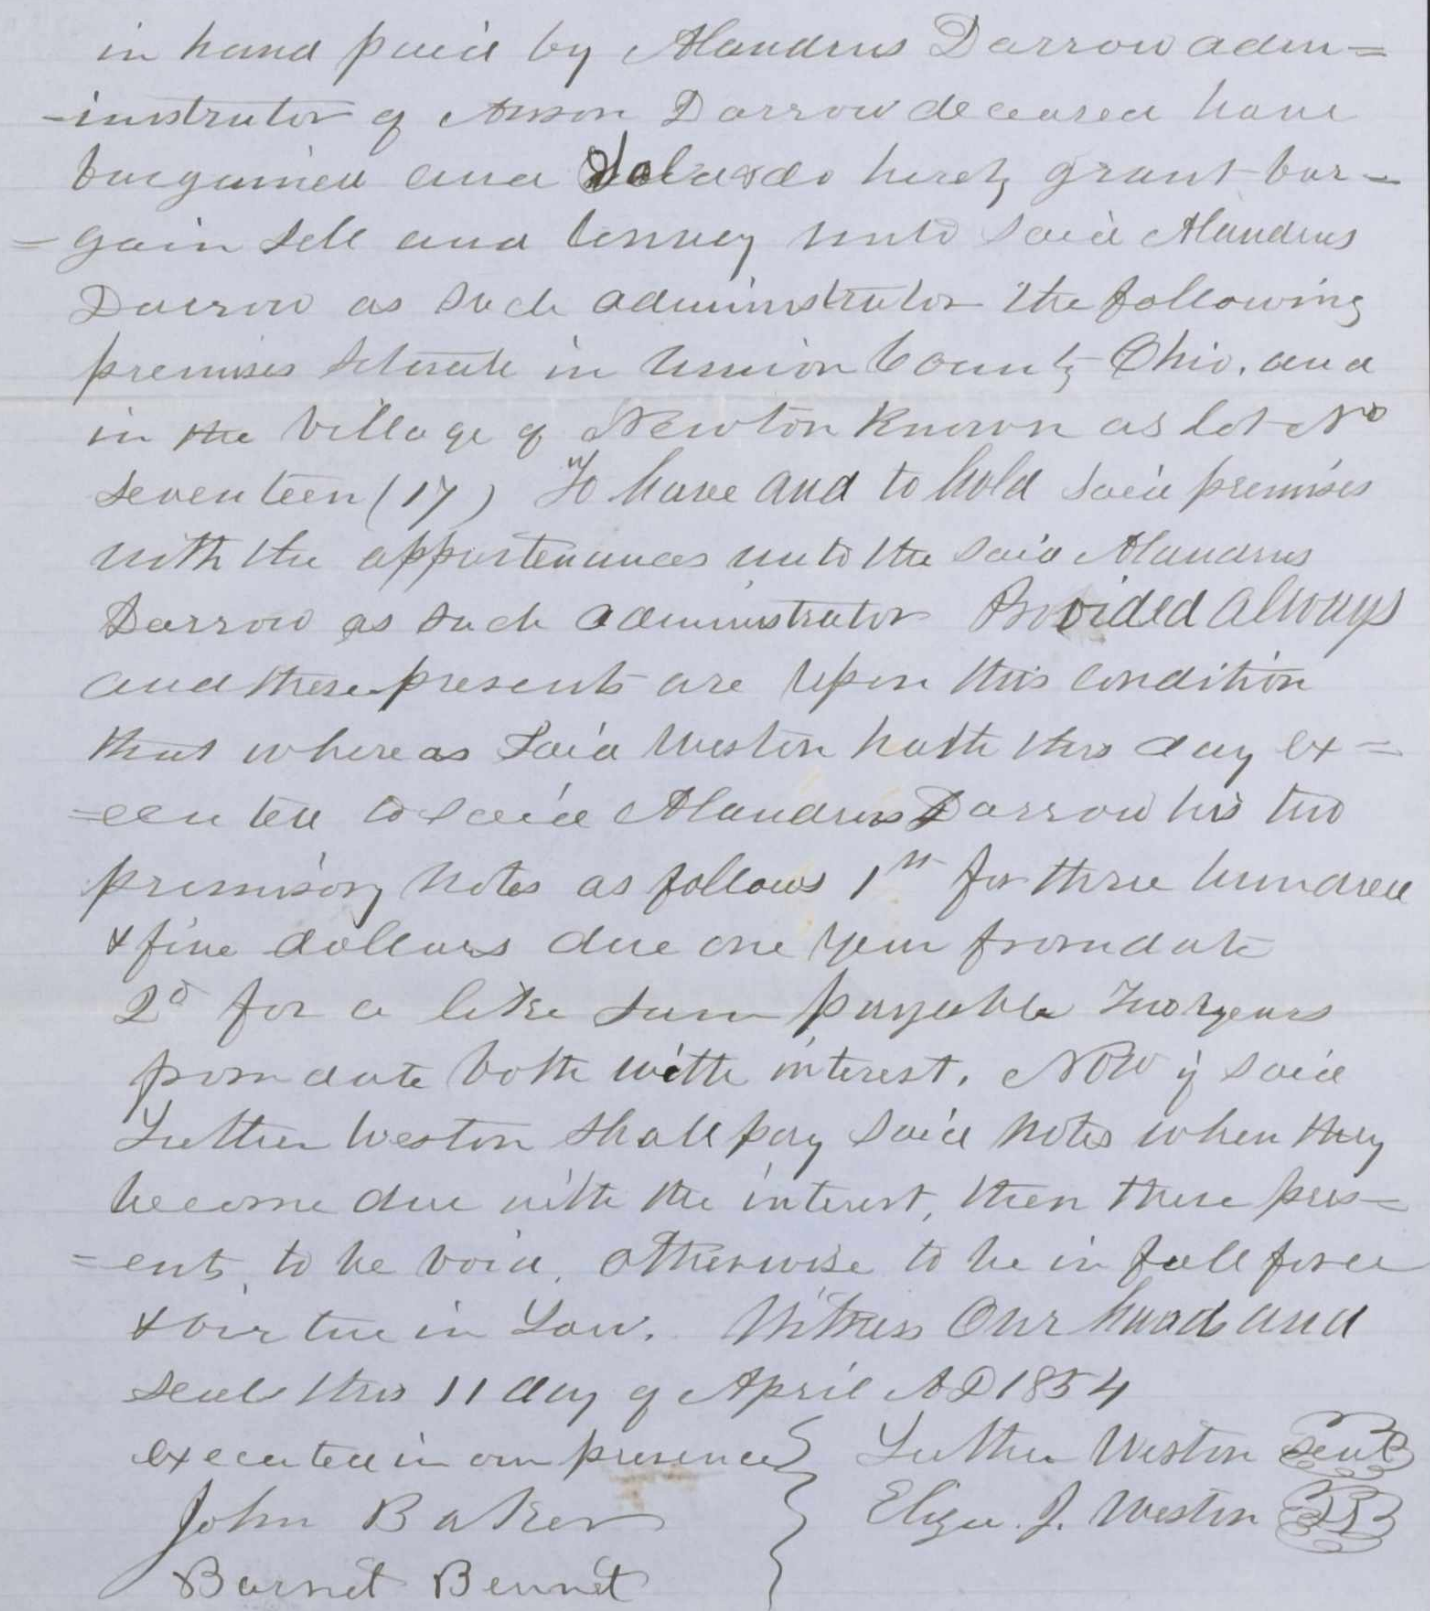 in hand paid by Alandrus Darrow adm=
-inistrator of Anson Darrow deceased have
bargained and Sold & do hereby grant bar-
=gain sell and convey unto said Alandrus
Darrow as such administrator the following
premises situate in Union County Ohio, and
in the Village of Newton known as lot No
seventeen (17) "To have and to hold said premises
with the appurtenances unto the said Alandrus
Darrow as such administrator Provided always
and these presents are upon this condition
that whereas said Weston hath this day ex=
=ecuted to said Alandrus Darrow his two
promisory notes as follows 1st for three hundred
& five dollars due one year from date
2d for a like sum payable Two years
from date both with interest. Now if said
Luther Weston shall pay said notes when they
become due with the interest, then these pres=
=ents, to be void, otherwise to be in full force
& virtue in Law. Witness Our hands and
seals this 11 day of April AD 1854
executed in our presence } Luther Weston seal
John Baker } Eliza. J. Weston
Barnet Bennet